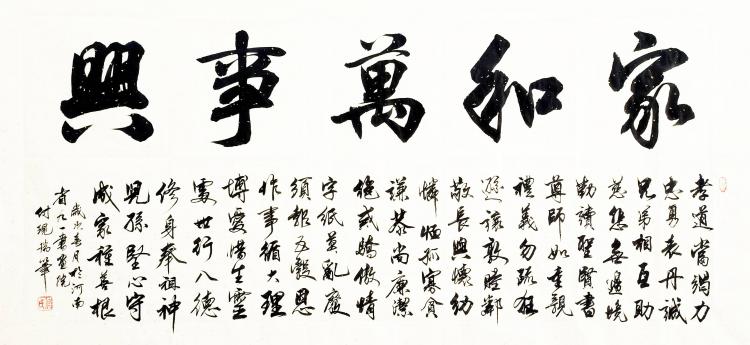 家和萬事興
孝道當竭力
忠勇表丹誠
兄弟相互助
慈悲無邊境
勤讀聖賢書
尊師如重親
禮義勿疏狂
遜讓敦睦鄰
敬長與懷幼
憐恤孤寡貧
謙恭尚廉潔
絕戒驕傲情
字紙莫亂廢
須報五穀恩
作事循天理
博愛惜生靈
處世行八德
修身奉祖神
兒孫堅心守
成家種善根
歲次月於河南
省九一書畫院
付現瑞筆